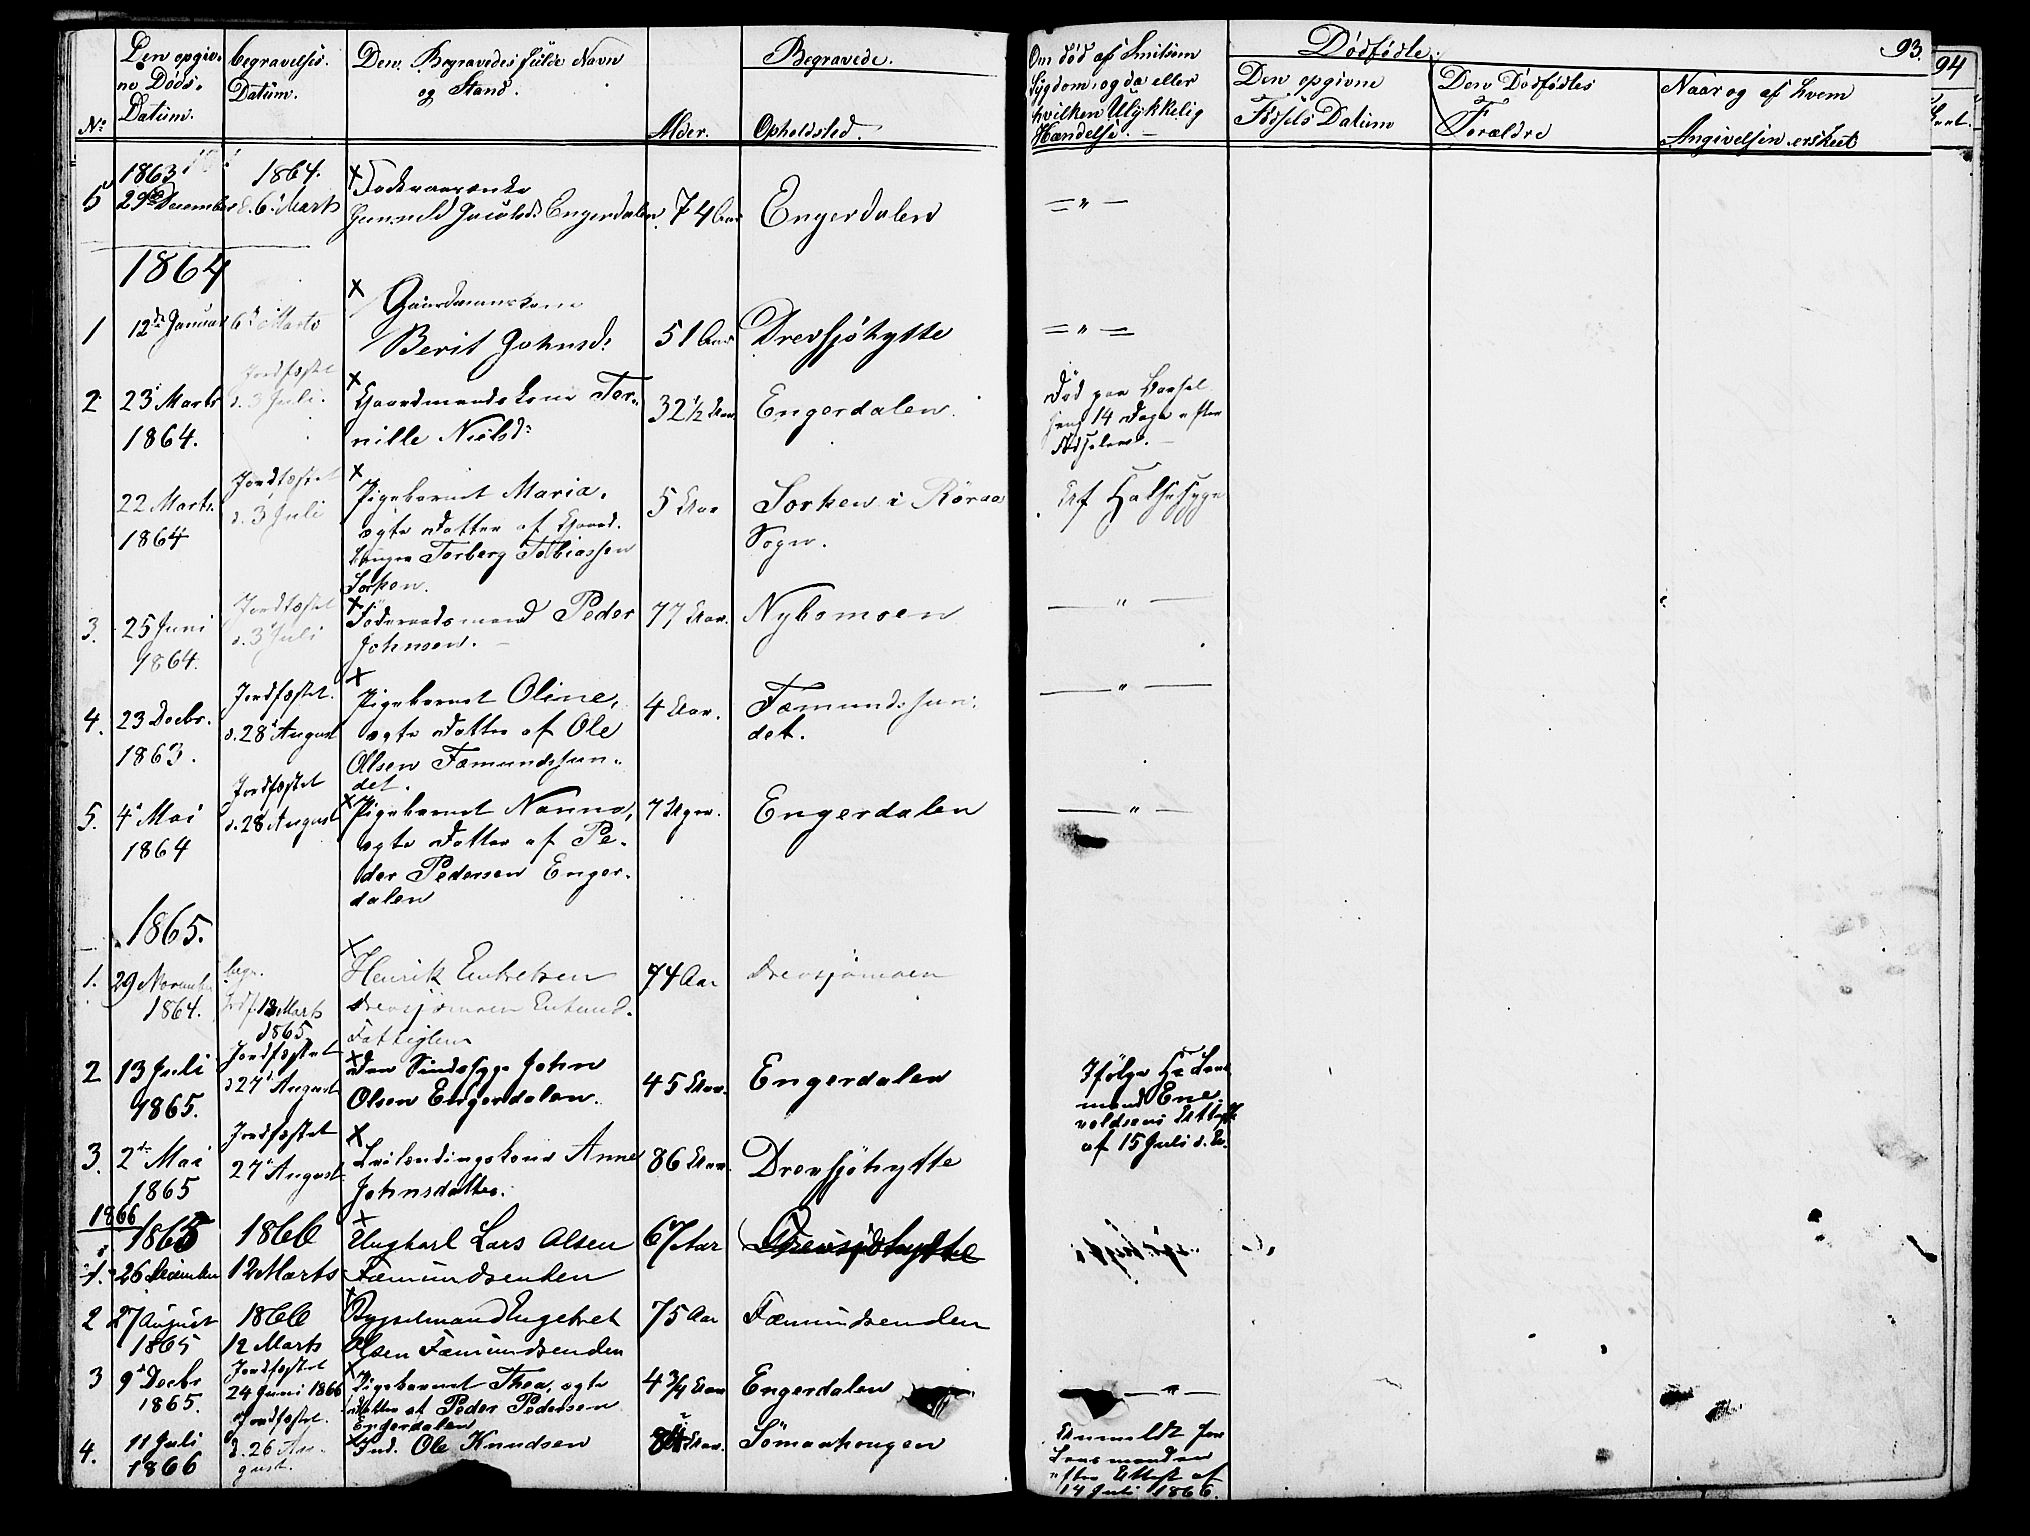 No
Den opgiv-
ne Døds-
Datum.
Begravelses-
Datum.
Den Begravedes fulde Navn
og Stand.
Alder.
Begravede.
Opholdsted.
Om død af Smitsom
Sygdom, og da eller
hvilken Ulykkelig
Hændelse.
Dødfødte.
Den opgivne
Fødsels Datum
Den Dødfødtes
Forældre
Naar og af hvem
Angivelsen er skeet
93.
94
1863
5
29de December
1864.
d. 6 Marts
Gunnild Jacobsd: Engerdalen
74 Aar
Engerdalen
1864
1
12te Januar
6 Marts
Gaardmandskone
Berit Johnsd:
51 Aar
Drevsjøhytte
2
23 Marts
1864.
Jordfæstet
d. 3 Juli.
Gaardmandskone Per-
nille Nielsd:
32 1/2 Aar
Engerdalen.
Død paa Barsel
14 Dage efter
22 Marts
1864
Jordfæstet
d. 3 Juli
Pigebarnet Maria,
ægte Datter af Gaard-
bruger Torberg Tobiassen
Sorken.
5 Aar
Sorken i Røraas
Sogn.
Af Halssyge
3.
25 Juni
1864.
Jordfæstet
d. 3 Juli
Føderaadsmand Peder
Johnsen.
77 Aar.
Nybomoen
4.
23 Decbr.
1863.
Jordfæstet.
d. 28 August
Pigebarnet Oline,
ægte Datter af Ole
Olsen Fæmundssun-
det.
4 Aar.
Fæmundssun-
det.
5.
4 Mai
1864
Jordfæstet
d. 28 August
Pigebarnet Nanna,
ægte Datter af Pe-
der Pedersen Enger-
dalen
7 Uger.
Engerdalen
1865.
1.
29 November
1864.
begr.
Jordf. 12 Marts
1865
Henrik
Drevsjømoen
Fattiglem
74 Aar
Drevsjømoen
2
13 Juli
1865.
Jordfæstet
d 27 August
Den Sindssyge John
Olsen Engerdalen.
45 Aar.
Engerdalen
Ifølge Hr Lens-
mand Ene-
voldsens Attest
af 15 Juli d. A.
3.
2den Mai
1865
Jordfæstet
27 August
Anne
Johnsdatter.
86 Aar.
Drevsjøhytte
1866
1865
1.
26 December
1866
12 Marts
Ungkarl Lars Olsen
Fæmundsenden
67 Aar
Drevsjøhytte
2
27 August
1865
1866
12 Marts
Olsen Fæmundsenden
75 Aar
Fæmundsenden
3
9 Decbr
1865.
Jordfæstet
24 Juni 1866
Pigebarnet Thea, ægte
Datter af Peder Pedersen
Engerdalen
4 3/4 Aar
Engerdalen
4.
11 Juli
1866
Jordfæstet.
d. 26 Au-
gust.
Ind. Ole Knudsen
Aar.
Sömaahougen
Anmeldt for
Lensmanden
efter Attest af
14 Juli 1866.